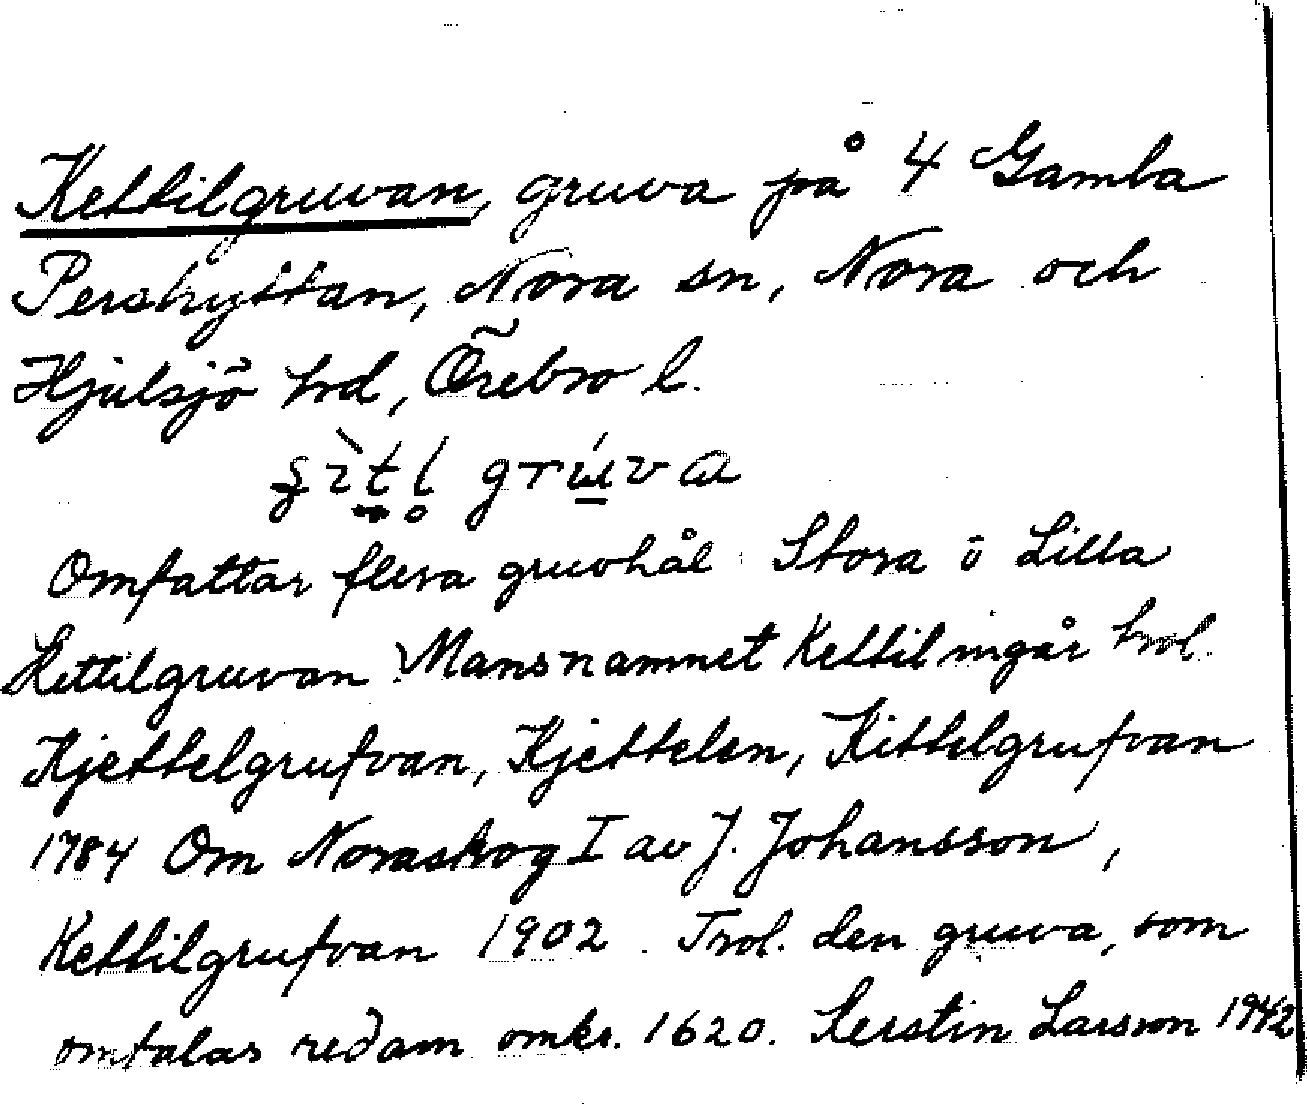 Kettilgruvan, gruva på 4 Gamla
Pershyttan, Nora sn, Nora och
Hjulsjö hd, Örebro l.
grúva
Omfattar flera gruvhål Stora o Lilla
Kettilgruvan Mansnamnet Kettil ingår trol.
Kjettelgrufvan, Kjettelen, Kittelgrufvan
1784 Om Noraskog I av J. Johansson,
Kettilgrufvan 1902. Trol. den gruva, som
omtalas redan omkr. 1620. Kerstin Larsson 1942